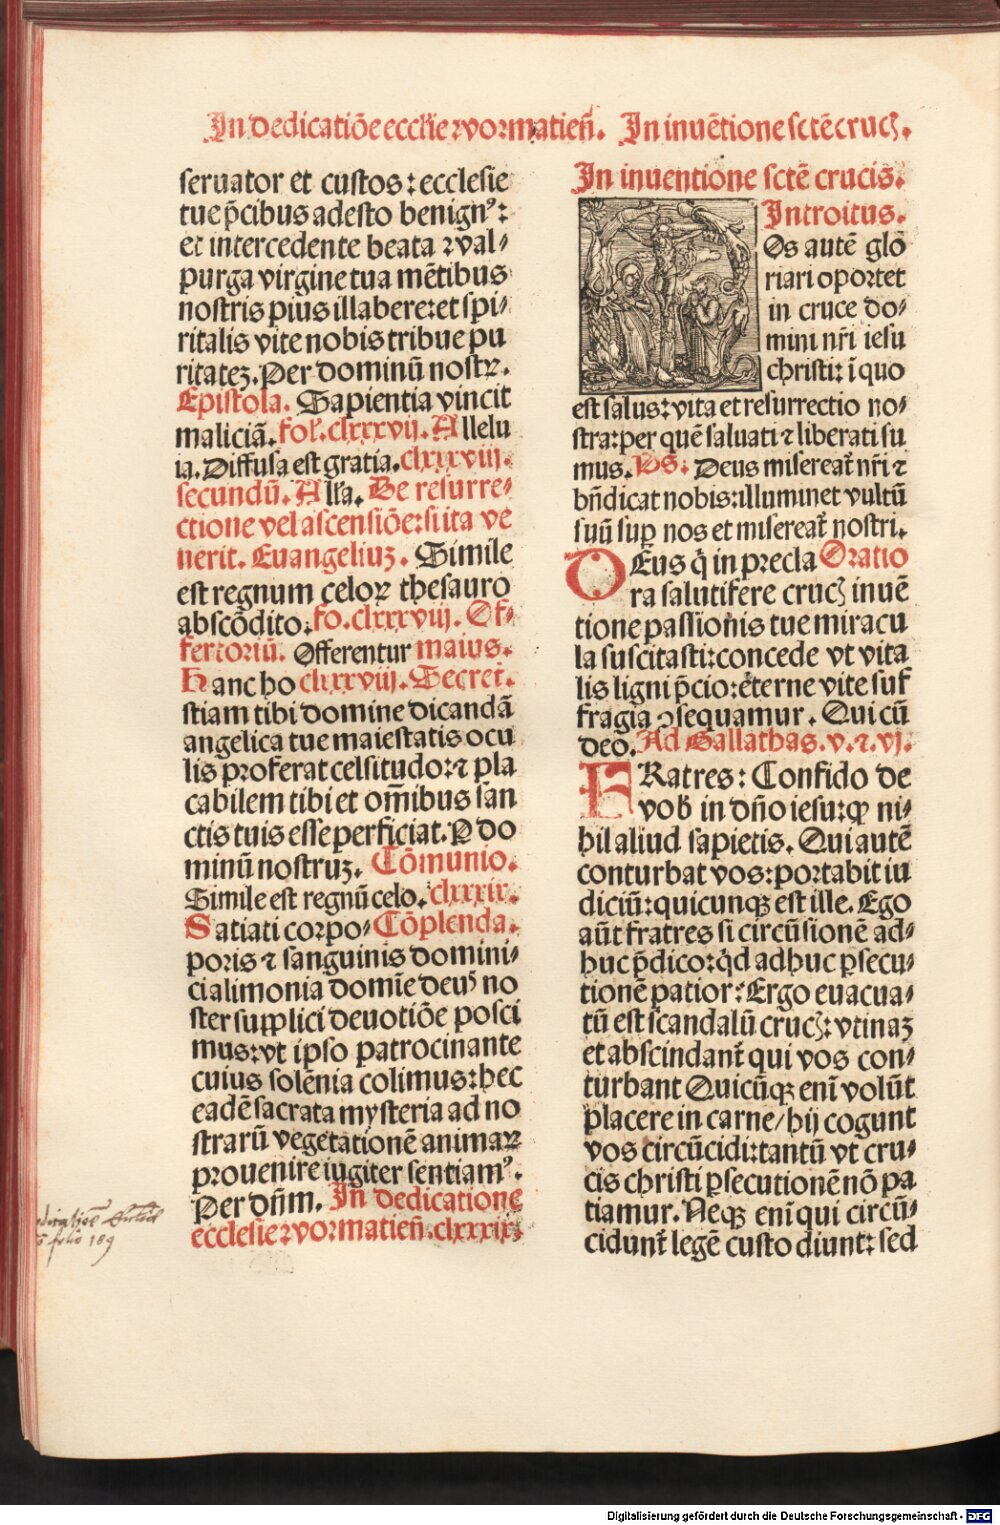 In dedicatiōe eccĺie ꝛvormatieñ. In inuētione sctē crucꝭ.
seruator et custos: ecclesie
tue p̄cibus adesto benignꝰ:
et intercedente beata ꝛval⸗
purga virgine tua mētibus
nostris pius illabere: et spi⸗
ritalis vite nobis tribue pu
ritateꝫ. Per dominū nostꝝ.
Epistola. Sapientia vincit
maliciā. fol. clxxxvij. Allelu
ia. Diffusa est gratia. clxxxviij.
secundū. Alĺa. De resurre⸗
ctione vel ascensiōe: si ita ve
nerit. Euangeliuꝫ. Simile
est regnum celoꝝ thesauro
abscōdito. fo. clxxxviij. Of⸗
fertoriū. Offerentur maius.
Hanc ho clxxxviij. Secret̄.
stiam tibi domine dicandā
angelica tue maiestatis ocu
lis proferat celsitudo: ⁊ pla
cabilem tibi et om̄ibus san
ctis tuis esse perficiat. P do
minū nostruꝫ. Cōmunio.
Simile est regnū celo. clxxxix.
Satiati corpo⸗ Cōplenda.
poris ⁊ sanguinis domini⸗
ci alimonia domīe deuꝰ no
ster supplici deuotiōe posci
mus: vt ipso patrocinante
cuius solēnia colimus: hec
eadē sacrata mysteria ad no
strarū vegetationē animaꝝ
prouenire iugiter sentiamꝰ.
Per dn̄m. In dedicatione
ecclesie ꝛvormatieñ. clxxxix.
folio 189
In inuentione sctē crucis.
Introitus.
Os autē glō
riari oportet
in cruce do⸗
mini nr̄i iesu
christi: ī quo
est salus: vita et resurrectio no⸗
stra: per quē saluati ⁊ liberati su
mus. Ps. Deus misereat̄ nr̄i ⁊
bn̄dicat nobis: illuminet vultū
suū suꝑ nos et misereat̄ nostri.
DEus q̇ in precla Oratio
ra salutifere crucꝭ inuē
tione passiōnis tue miracu
la suscitasti: concede vt vita
lis ligni p̄cio: eterne vite suf
fragia ꝯsequamur. Qui cū
deo. Ad Gallathas. v. ⁊. vj.
FRatres: Confido de
vob̄ in dn̄o iesu: ꝙ ni⸗
hil aliud sapietis. Qui autē
conturbat vos: portabit iu
diciū: quicunqꝫ est ille. Ego
aūt fratres si circūsionē ad⸗
huc p̄dico: qd̓ adhuc ꝑsecu⸗
tionē patior: Ergo euacua⸗
tū est scandalū crucꝭ: vtinaꝫ
et abscindant̄ qui vos con⸗
turbant Quicūqꝫ enī volūt
placere in carne/ hij cogunt
vos circūcidi: tantū vt cru⸗
cis christi ꝑsecutionē nō pa
tiamur. Neqꝫ enī qui circū⸗
cidunt̄ legē custodiunt: sed
Digitalisierung gefördert durch die Deutsche Forschungsgemeinschaft - DFG